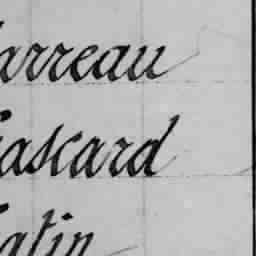 arreau
ascard
atin